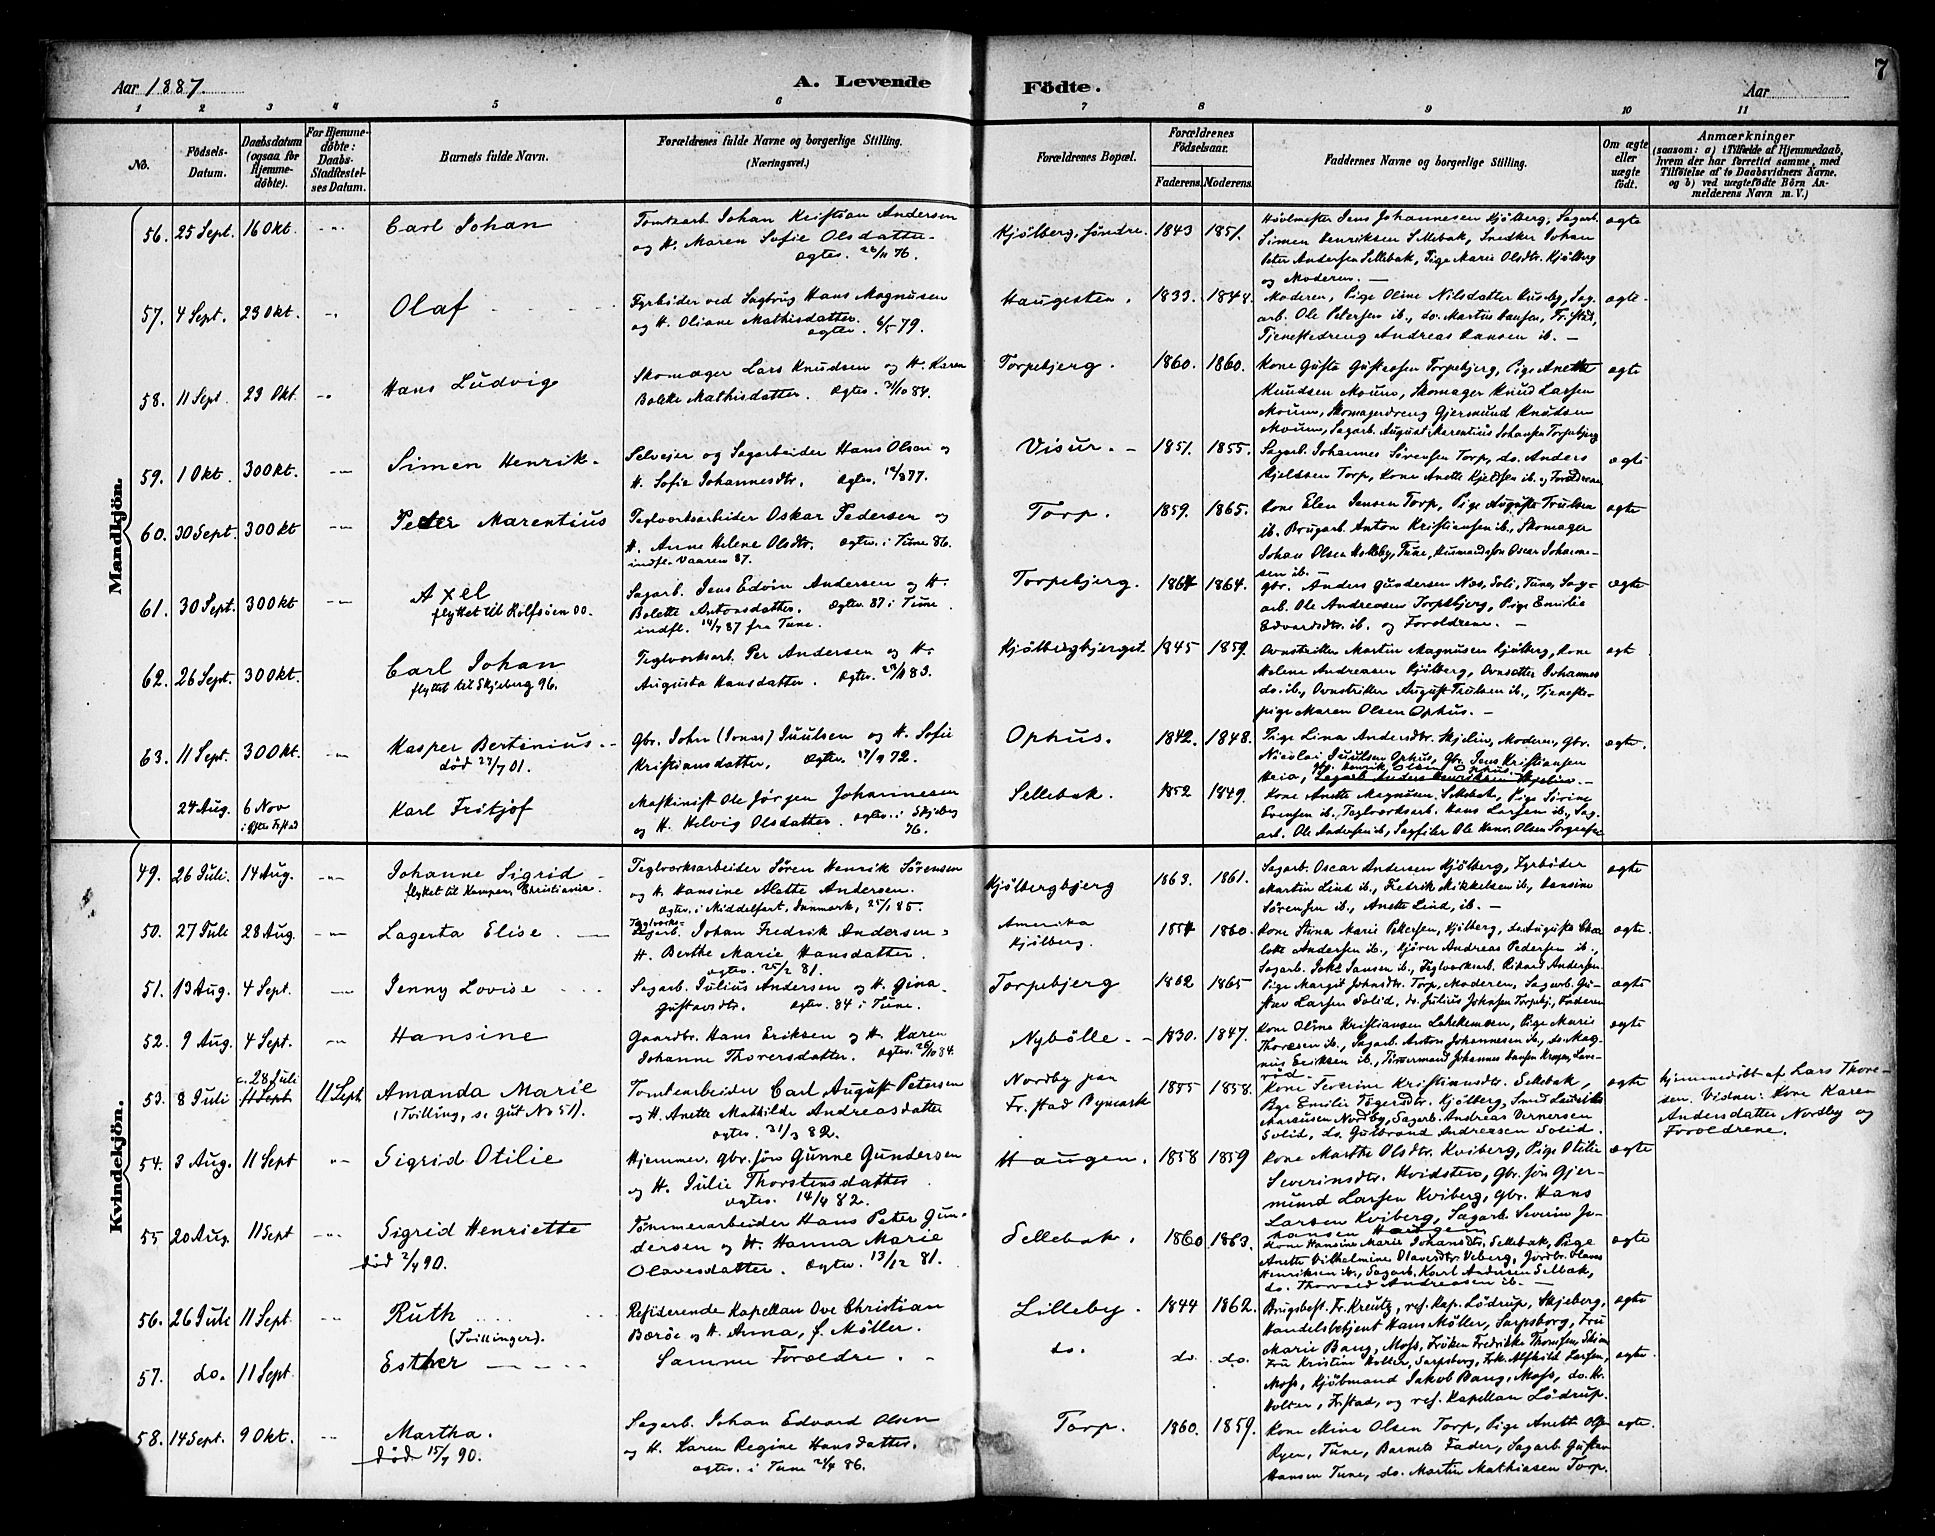 7
Aar 1887.
A. Levende
Födte.
Aar
1 2 3 4 5 6 7 8 9 10 11
No.
Födsels-Datum.
Daabsdatum (ogsaa for Hjemme-döbte).
For Hjemme-döbte: Daabs-Stadfæstel-ses Datum.
Barnets fulde Navn.
Forældrenes fulde Navne og borgerlige Stilling.
(Næringsvei.)
Forældrenes Bopæl.
Forældrenes Födselsaar.
Faderens. Moderens.
Faddernes Navne og borgerlige Stilling.
Om ægte eller uægte født.
Anmærkninger
(saasom: a) i Tilfælde af Hjemmedaab,
hvem der har forrettet samme, med
Tilföielse af to Daabsvidners Navne.
og b) ved uægtefödte Börn An-
melderens Navn m. V.)
Mandkjön.
56. 25 Sept. 16 Okt. Carl Johan
Tomtearb. Johan Kristian Andersen
og H. Maren Sofie Olsdatter.
Ægtev. 26/11 76.
Kjölberg, søndre. 1843 1851.
Høvlmester Jens Johannesen Kjölberg, Sagarb.
Simen Henriksen Sellebak, Snedker Johan
Peter Andersen Sellebak, Pige Marie Olsdtr. Kjölberg
og Moderen. —
ægte
57. 4 Sept. 23 Okt. Olaf
Fyrbøder ved Sagbrug Hans Magnusen
og H. Oliane Mathisdatter.
ægtev. 6/5 79.
Haugesten. 1833. 1848.
Moderen, Pige Oline Nilsdatter Huseby, Sag-
arb. Ole Petersen ib., do. Martin Hansen, Fr.stad,
Tjenestedreng Andreas Hansen ib. —
ægte
58. 11 Sept. 23 Okt. Hans Ludvig
Skomager Lars Knudsen og H. Karen
Bolette Mathisdatter. Ægtev. 31/10 84.
Torpebjerg. 1860. 1860.
Kone Gusta Gustavsen Torpebjerg, Pige Anette
Knudsen Moum, Skomager Knud Larsen
Moum, Skomagerdreng Gjermund Knutsen
Moum, Sagarb. August Marentius Johansen Torpebjerg
ægte
59. 1 Okt. 30 Okt. Simen Henrik.
Selveier og Sagarbeider Hans Olsen og
H. Sofie Johannesdtr. Ægtev. 12/8 77.
Visur. 1851. 1855.
Sagarb. Johannes Sørensen Torp, do. Anders
Kjeldsen Torp, Kone Anette Kjeldsen ib. og Forældrene
ægte
60. 30 Sept. 30 Okt. Peder Marentius
Teglværksarbeider Oskar Pedersen og
H. Anne Helene Olsdtr. Ægtev. i Tune 86.
indfl. Vaaren 87.
Torp. 1859. 1865.
Kone Elen Jensen Torp, Pige Auguste Trulsen
ib. Brugarb. Anton Kristiansen ib., Skomager
Johan Olsen Tune, Husmandssøn Oscar Johanne-
sen ib. —
ægte
61. 30 Sept. 30 Okt Axel
flyttet til Rolfsøen 00.
Sagarb. Jens Edvin Andersen og H.
Bolette Antonsdatter. Ægtev. 87 i Tune
indfl. 14/7 87 fra Tune.
Torpebjerg. 1864 1864.
Gbr. Anders Gundersen Næs, Soli, Tune, Sag-
arb. Ole Andreasen Torpebjerg, Pige Emilie
Edvardsdtr. ib. og Forældrene. —
ægte
62. 26 Sept. 30 Okt. Carl Johan
flyttet til Skjeberg 96.
Teglværksarb. Per Andersen og H.
Augusta Hansdatter. Ægtev. 83.
Kjölbergbjerget. 1845 1859.
Ovnstriker Martin Magnusen Kjölberg, Kone
Helene Andreasen Kjölberg, Ovnsætter Johannes
do. ib., Ovnstriker August Trulsen ib., Tjeneste-
pige Maren Olsen Ophus. —
ægt
63. 11 Sept. 30 Okt. Kasper Bertinius.
død 27/7 01.
Gbr. John (Jonas) Juulsen og H. Sofie
Kristiansdatter. Ægtev. 17/9 72.
Ophus. 1842. 1848.
Pige Lina Andersdtr. Skjelin, Moderen, Gbr.
Nicolai Juulsen Ophus, Gbr. Jens Kristiansen
Heia, Gbr. Henrik Olsen Ophus. Sagarb. Anders Henriksen Skjelin. —
ægte.
24 Aug. 6 Nov Karl Fritjof
Maskinist Ole Jörgen Johannesen
og H. Helvig Olsdatter. Ægtev. i Skjeberg
76.
Sellebak. 1852 1849.
Kone Anette Magnusen Sellebak, Pige Sörine
Evensen ib., Teglværksarb. Hans Larsen ib., Sag-
arb. Ole Andersen ib., Sagfiler Ole Hans Olsen
Kvindekjön.
49. 26 Juli. 14 Aug. Johanne Sigrid
flyttet til Kampen, Christiania.
Teglværksarbeider Søren Henrik Sørensen
og H. Hansine Alette Andersen.
Ægtev. i Middelfart, Danmark, 25/1 85.
Kjölbergbjerg 1863. 1861.
Sagarb. Oscar Andersen Kjölberg, Fyrbøder
Martin Lind ib., Fredrik Mikkelsen ib., Hansine
Sørensen ib., Anette Lind, ib. —
ægte
50. 27 Juli 28 Aug. Lagerta Elise.
Teglværks-
Johan Fredrik Andersen
H. Berthe Marie Hansdatter.
ægtev. 25/2 81.
Amerika
Kjölberg. 1854 1860.
Kone Anna Marie Petersen, Kjölberg, do. Auguste Char-
lotte Andersen ib., Kjører Andreas Pedersen ib.,
Sagarb. Johs. Jansen ib., Teglværksarb. Rikard Andersen
ægte.
51. 13 Aug. 4 Sept. Jenny Lovise
Sagarb. Julius Andersen og H. Gina
Gustavsdtr. Ægtev. 84 i Tune.
Torpebjerg 1862 1865
Pige Margit Johnsdtr. Torp, Moderen, Sagarb. Gu-
stav Larsen Solid, do. Julius Johnsen Torpebj., Faderen
ægte
52. 9 Aug. 4 Sept. Hansine
Gaardbr. Hans Eriksen og H. Karen
Johanne Thorersdatter. Ægtev. 26/10 84.
Nybölle. 1830. 1847.
Kone Oline Kristiansen Lahekemoen, Pige Marie
Thoresen ib., Sagarb. Anton Johannesen ib., do. Mag-
nus Eriksen ib., Tømmermand Johannes Hansen
röd.
ægte
53. 8 Juli c. 28 Juli 11 Sept 11 Sept Amanda Marie
(Tvilling, se Gut No 51).
Tomtearbeider Carl August Petersen
og H. Anette Mathilde Andreasdatter
ægtev. 31/3 82.
Nordby paa
Fr.stad Bymark 1855 1858.
Kone Severine Kristiansdtr. Sellebak,
Pige Emilie Asgersdtr. Kjölberg, Smed Lauritz
Marcusen Nordby, Sagarb. Andreas Vernersen
Solid, do. Gulbrand Andreasen Solid.
ægte
Hjemmedøbt af Lars Thore-
sen. Vidner: Kone Karen
Andersdatter Nordby og
Forældrene.
54. 3 Aug. 11 Sept Sigrid Otilie
Hjemmev. Gbr. søn Gunne Gundersen
og H. Julie Thorstensdatter
Ægtev. 14/4 82.
Haugen. 1858 1859
Kone Marthe Olsdtr. Kviberg, Pige Otilie
Severinsdtr. Hvidsten, Gbr. søn Gjer-
mund Larsen Kviberg, Gbr. Hans
Larsen Kviberg, Sagarb. Severin Jo-
hansen Haugen
ægte
55 20 Aug. 11 Sept Sigrid Henriette
død 2/4 90.
Tømmerarbeider Hans Peter Gun-
dersen og H. Hanna Marie
Olavesdatter. Ægtev. 13/12 81.
Sellebak. 1860 1863.
Kone Hansine Marie Johansdtr. Sellebak, Pige
Anette Vilhelmine Olavesdtr. Veberg, Gaardbr. Olaves
Henriksen ib., Sagarb. Karl Andersen Selbak,
do. Thorvald Andreasen ib. —
ægte
56. 26 Juli 11 Sept. Ruth
(Tvillinger).
Residerende Kapellan Ove Christian
Børøe og H. Anna, f. Möller.
Lilleby. 1844 1862.
Brugsbest. Fr. Kreutz, res. Kap. Lödrup, Skjeberg,
Handelsbetjent Hans Möller, Sarpsborg, Fru
Marie Bang, Moss, Frøken Fredrikke Thomsen,
ægte
57. do. 11 Sept. Esther
Samme Forældre.
do. do. do.
Fru Kristine Holter, Sarpsborg, Frk. Alfhild Larsen,
Moss, Kjøbmand Jakob Bang, Moss, do. H.
Holter, Fr.stad, og res. Kapellan Lödrup.
ægte.
58. 14 Sept. 9 Okt. Martha.
død 15/7 90.
Sagarb. Johan Edvard Olsen
og H. Karen Regine Hansdatter.
Ægtev. i Tune 86.
Torp. 1860. 1859.
Kone Mina Olsen Torp, Pige Anette Olsen
Ryen, Tune, Barnets Fader, Sagarb. Gustav
Hansen Tune, do. Martin Mathiasen Torp.
ægte.